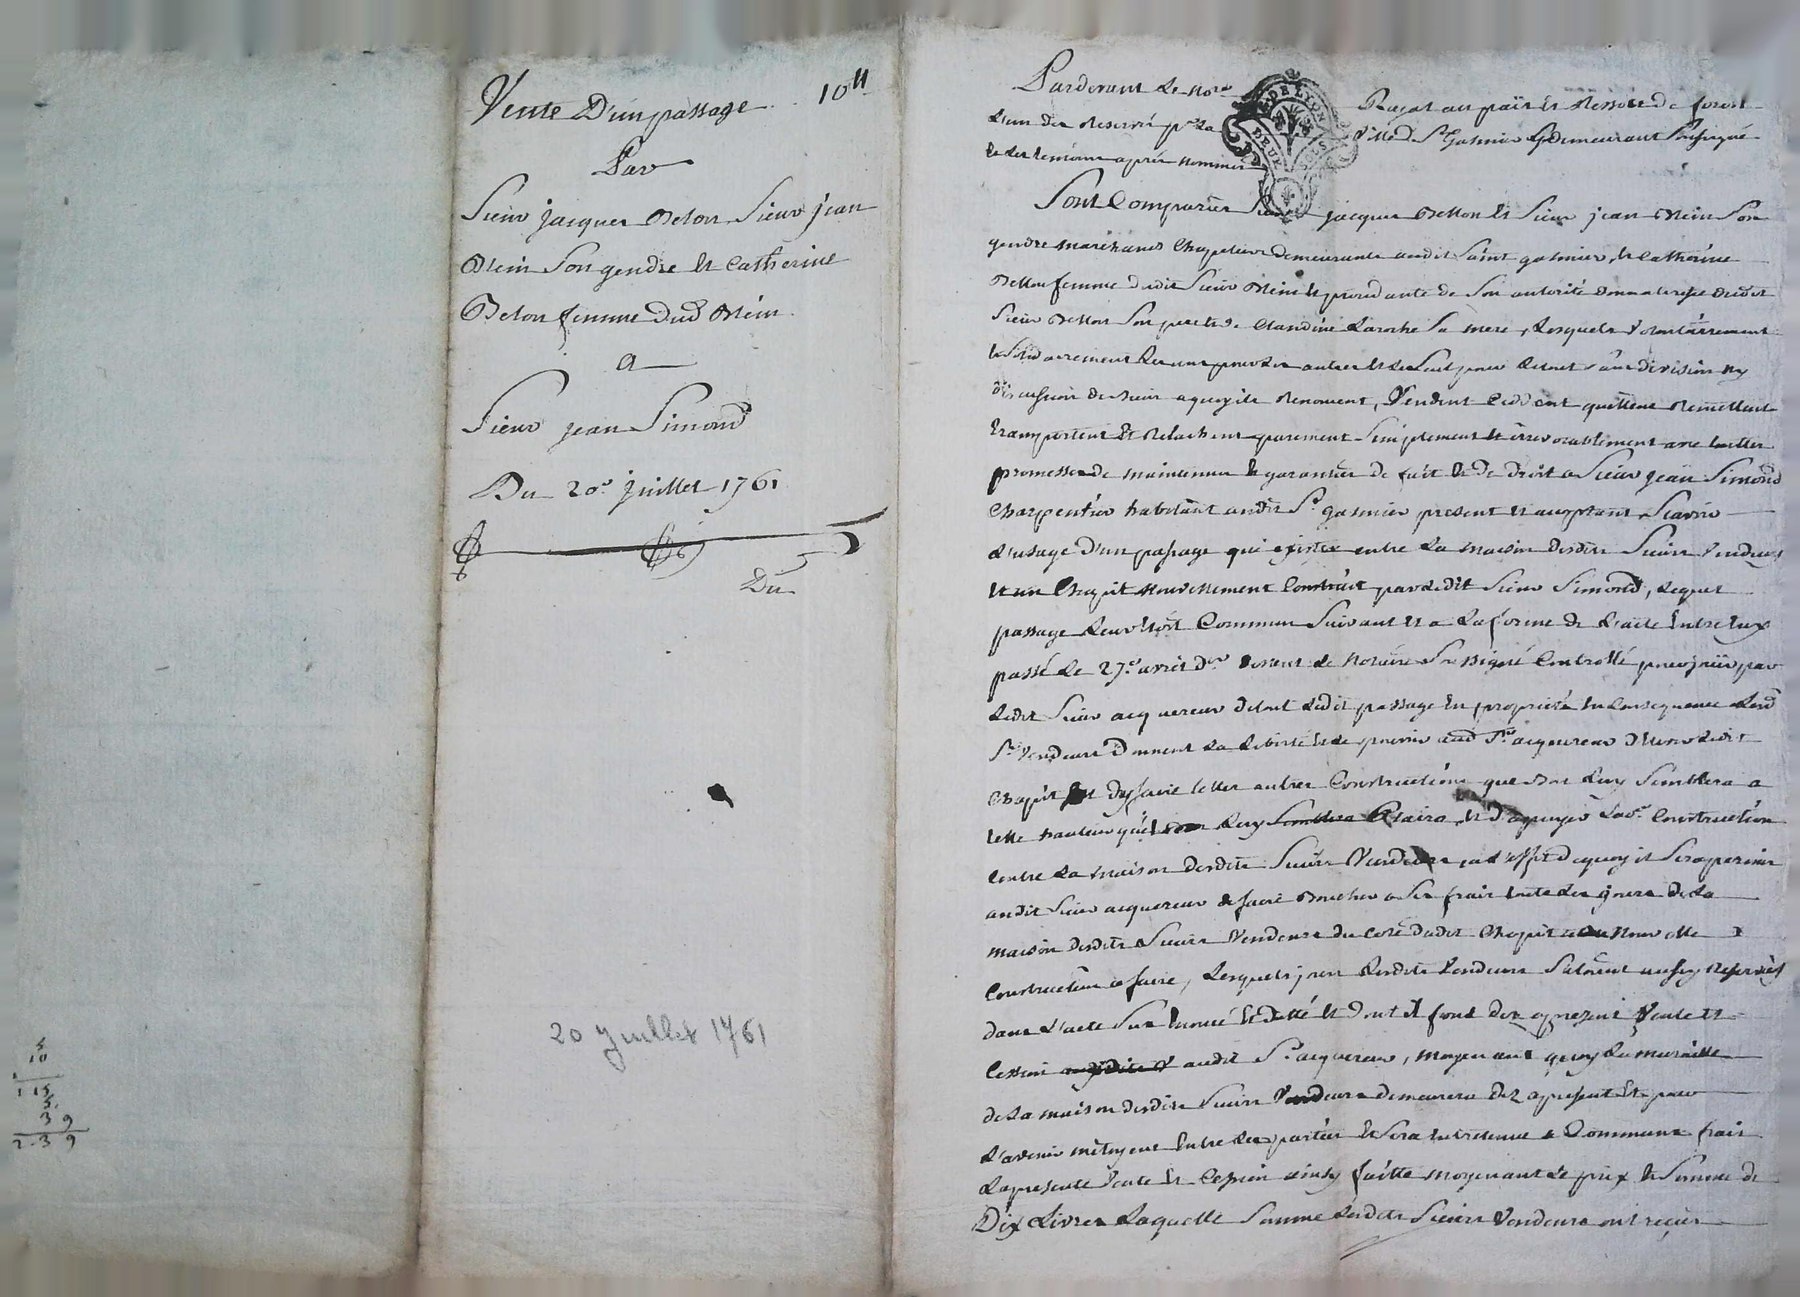 Vente D'un passage 10 ll
Par
Sieur jacques Delon Sieur jean
Blein Son gendre et Catherine
Delon femme dud Blein
a
Sieur jean Simond
Du 20e juillet 1761
Du
20 juillet 1761
5
10
1 15
5
3 9
2. 3 9
Pardevant le Nore Royal au païs et Ressort de forest
L'un des Reservés pr la Ville de St Galmier y demeurant Soussigné
et les temoins aprés nommés
GÉN. DE LYON
DEUX SOLS
Sont Comparus Sieur jacques Dellon et Sieur jean Blein Son
gendre marchands Chapeliers demeurants audit Saint galmier, et Catherine
Dellon femme dudit Sieur Blein et procedante de Son autorité dudit
Sieur Dellon Son pere et de Claudine Laroche Sa mere, Lesquels Volontairement
et Solidairement Les uns pour Les autres et un Seul pour Le tout Sans division ny
discussion de biens a quoy ils Renoncent, Vendent Ceddent quittent Remettent
transportent et Relachent purement Simplement et irrevocablement avec
promesse de maintenir et garantir de fait et de droit a Sieur jean Simond
Charpentier habitant audit St galmier present et acceptant Scavoir
L'usage d'un passage qui existe entre La maison desdits Sieurs Vendeurs
et un Chapit nouvellement Construit par Ledit Sieur Simond, Lequel
passage Leur etoit Commun Suivant et a La forme de L'acte Entre Eux
passé Le 27e avril der devant Le Notaire Soussigné Controllé pour jouir par
Ledit Sieur acquereur de tout Ledit passage En proprieté En Consequence Lesd
Srs Vendeurs Donnent La Liberté et Le pouvoir aud Sr acquereur Ledit
Chapit et d'y faire telles autres Constructions que bon Luy Semblera a
telle hauteur qu'il Luy Plaira et d'apuyer Constructions
Contre La maison desdits Sieurs Vendeurs a L'effet de quoy il Sera permis
audit Sieur acquereur de faire Boucher a Ses frais tous Les jours de La
maison desdits Sieurs Vendeurs du Coté dudit Chapit Nouvelle
Construction a faire, Lesquels jours Lesdits Vendeurs S'etoient Reservés
dans L'acte Sus Enoncé et Datté et dont il font dez apresent Vente et
Cession audit Sr acquereur, moyenant quoy La muraille
de La maison desdits Sieurs Vendeurs demeurera dez apresent et pour
L'avenir mitoyene Entre Les parties et Sera Entretenue a Communs frais
La presente Vente et Cession ainsy faitte moyenant Le prix et Somme de
Dix Livres Laquelle Somme Lesdits Sieurs Vendeurs ont reçue